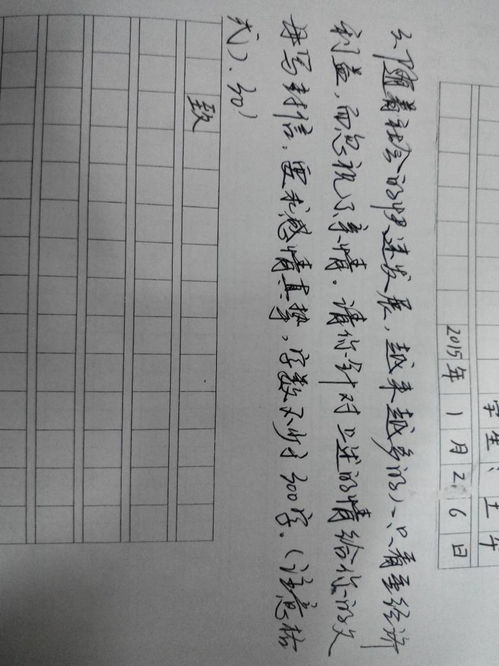 学生：王午
2015年1月26日
2、随着社会的快速发展，越来越多的人只看重经济
利益，而忽视了亲情。请你针对上述的情给你的父
母写封信，要求感情真挚，字数不少于300字。（注意格
式）.（30）
致